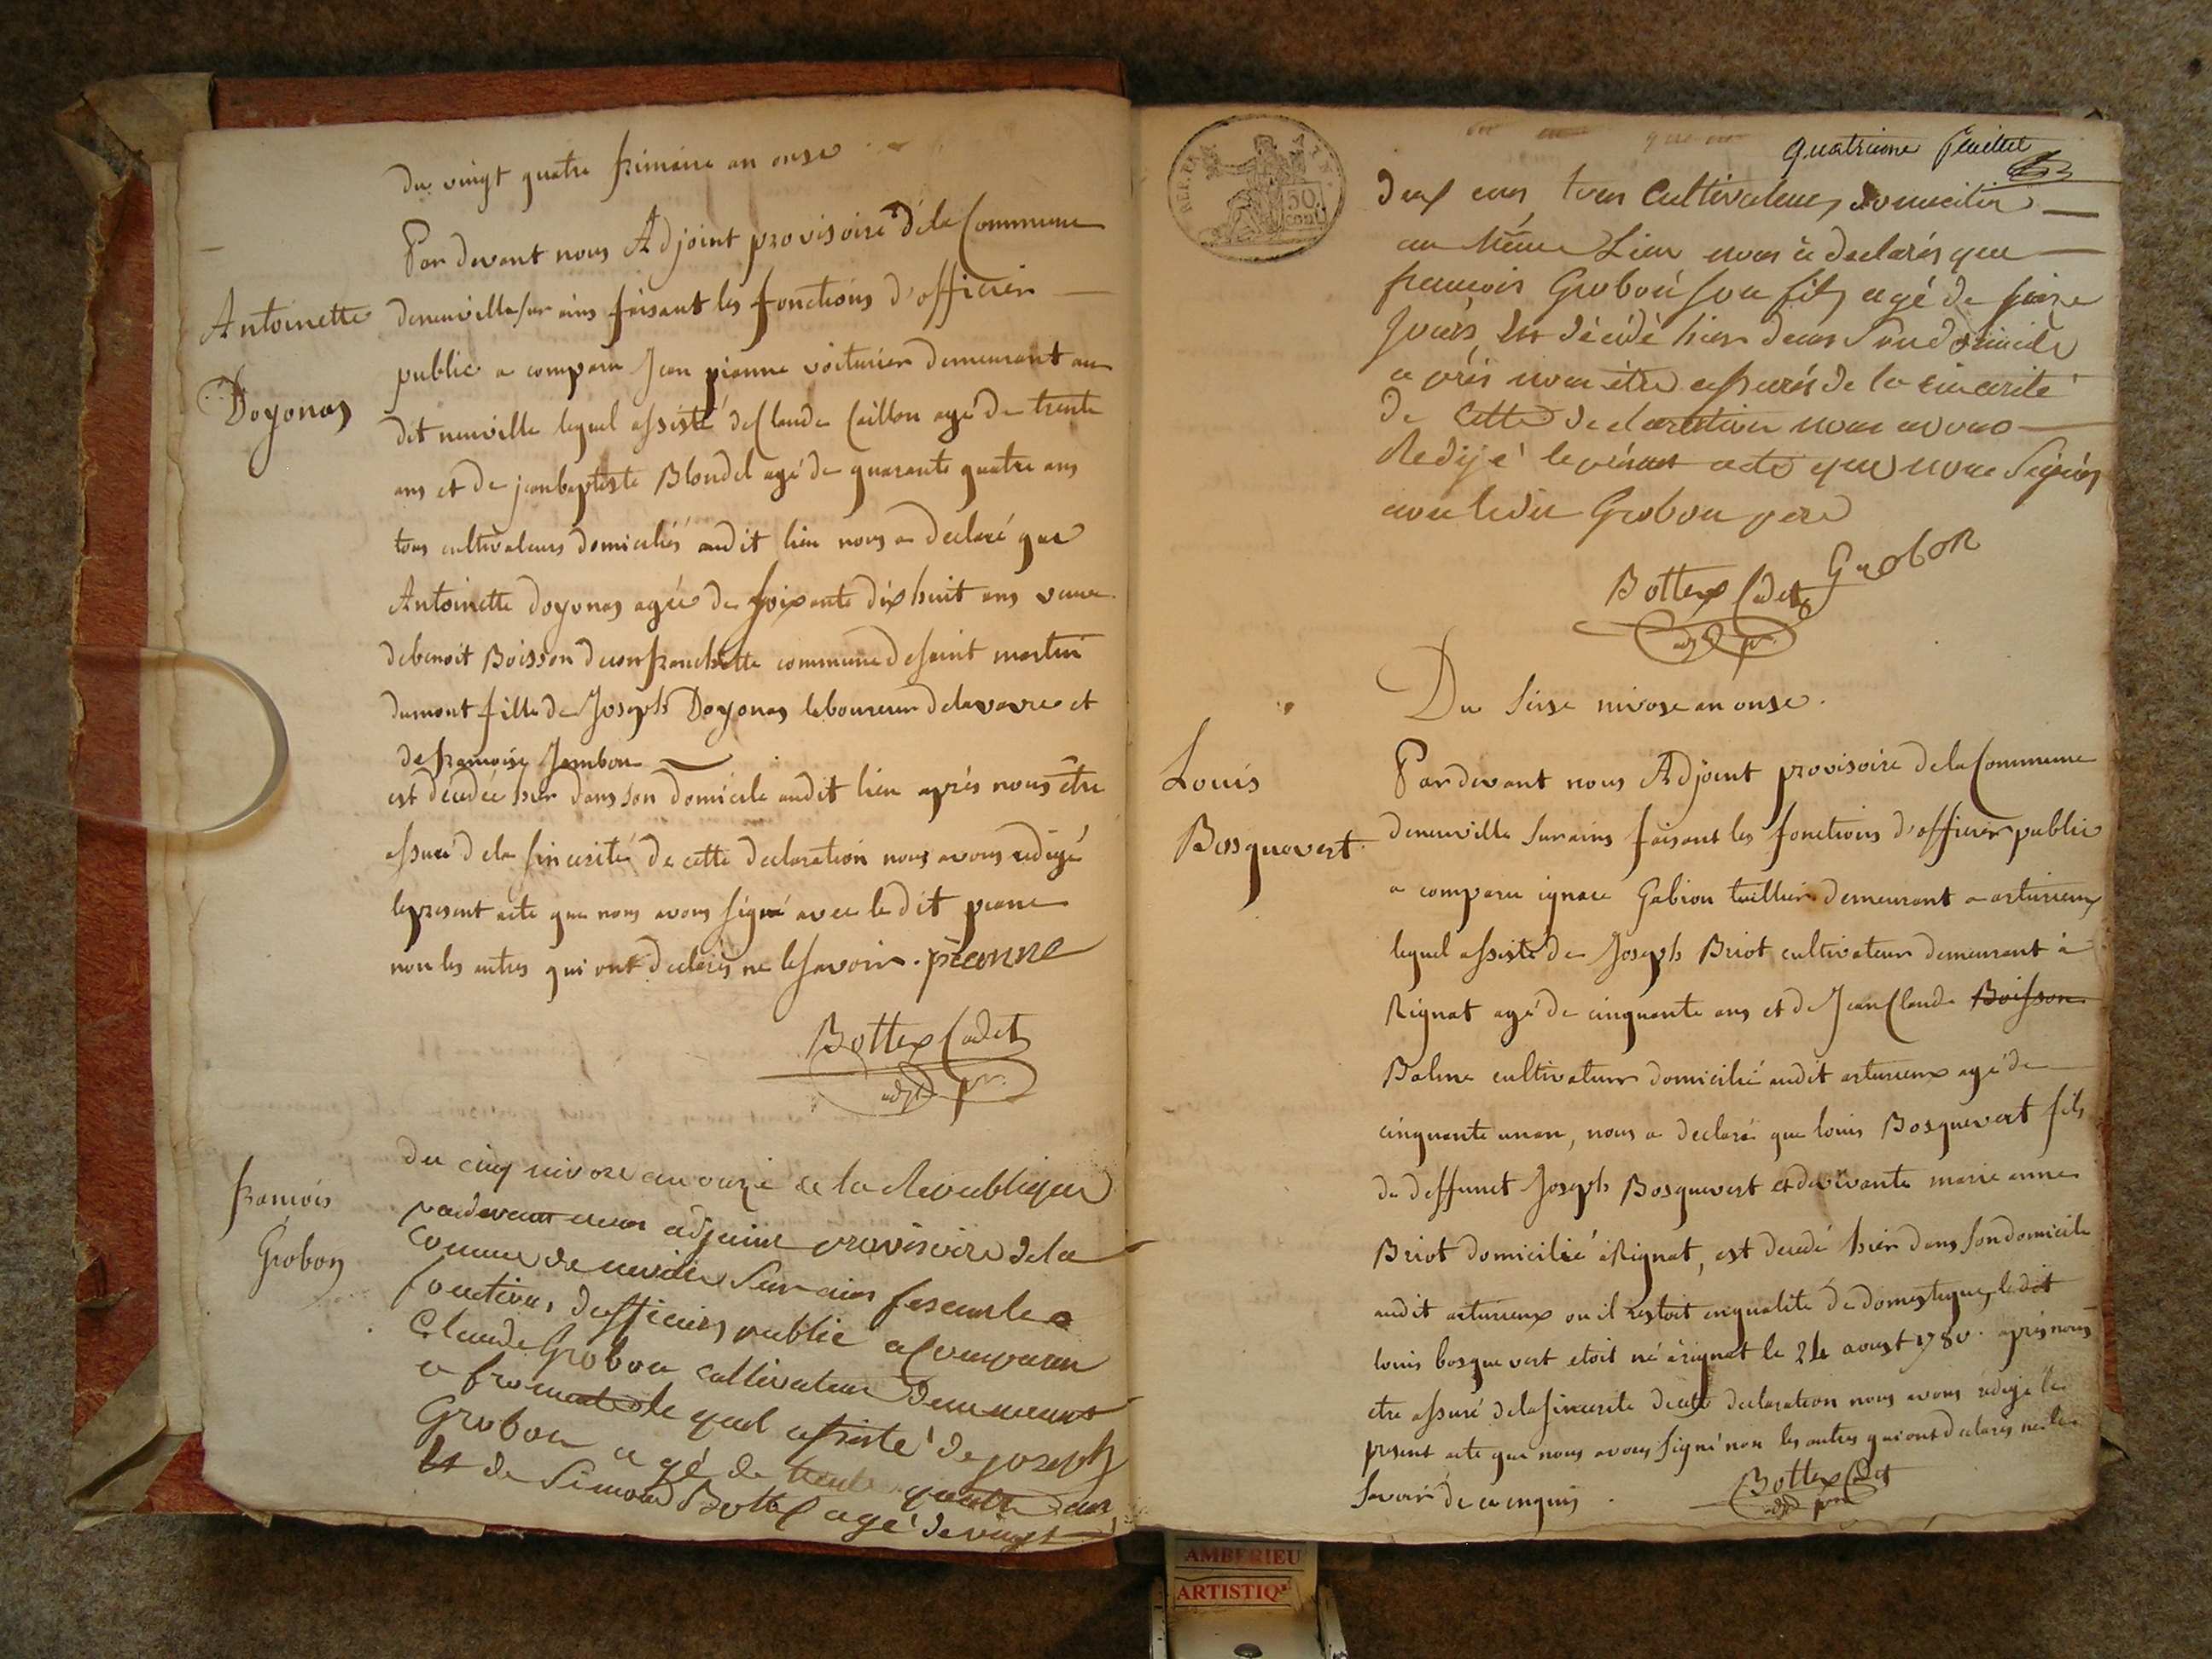 du vingt quatre frimaire an onse
Par devant nous Adjoint provisoire de la Commune
Antoinette
Doyonas
deneuville sur ains faisant les fonctions d'officier
public a comparu Jean pianne voiturier demeurant au
dit neuville lequel assisté de Claude Caillon agé de trente
ans et de jeanbaptiste Blondel agé de quarante quatre ans
tous cultivateurs domiciliés audit lieu nous a declaré que
Antoinette doyonas agée de soixante dix huit ans veuve
debenoit Boisson deconfranchette commune desaint martin
dumont fille de Joseph Doyonas laboureur delavavre et
de francoise Jambon
est décédée hier dans son domicile audit lieu après nous être
assuré dela sincerité de cette declaration nous avons redigé
lepresent acte que nous avons signé avec le dit pianne
non les autres qui ont declarés ne lesavoir. pianne
Bottex Cadet
adjt pr.
françois
Grobon
du cinq nivose an onze de la Republique
pardevant nous adjoint provisoire dela
Comune de neuville Sur ains fesant les
fonctions d'officiers public a Comparu
Claude Grobon cultivateur Demeurant
a fromente le quel assisté de joseph
Grobon agé de trente quatre ans
et de Simond Bottex agé de vingt
quatrieme feuillet
REP. FRA.
50
CENT
deux ans tous Cultivateurs domicilies
au Même Lieu nous à declarés que
francois Grobon son fils agé de seize
jours est décédé hier dans son domicile
après nous être assurés de la sincerité
de Cette declaration nous avons
Redijé le présent acte que nous Signés
avec ledit Grobon pere
Bottex Cadet Grobon
adjt pr.
Du seise nivose an onse.
Louis
Bosquevert
Par devant nous Adjoint provisoire dela Commune
deneuville surains faisant les fonctions d'officier public
a comparu ignace Gabion tuillier demeurant a arturieux
lequel assisté de Joseph Briot cultivateur demeurant à
Rignat agé de cinquante ans et de Jean Claude Boisson
Balme cultivateur domicilié audit arturieux agé de
cinquante un an, nous a declaré que louis Bosquevert fils
de deffunct Joseph Bosquevert et devivante marie anne
Briot domicilié àRignat, est decedé hier dans son domicile
audit arturieux ou il restoit enqualité de domestique, ledit
louis bosquevert etoit né àrignat le 24 aoust 1780. après nous
etre assuré delasincerité decette declaration nous avons redigé le
present acte que nous avons signé non les autres qui ont declarés ne le
savoir de ce enquis.
Bottex Cadet
adjt pr
AMBERIEU
ARTISTIQ